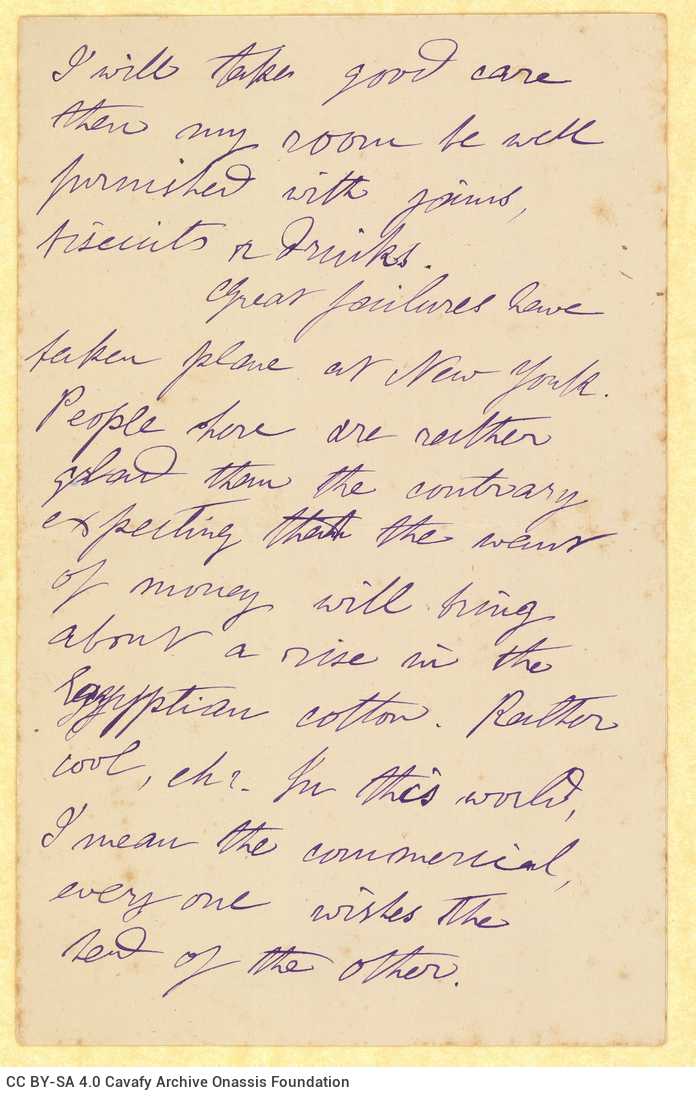 I will take good care
then my room be well
furnished with jams,
biscuits or drinks.
Great failures have
taken place at New York.
People here are rather
glad than the contrary
expecting that the want
of money will bring
about a rise in the
Egyptian cotton. Rather
cool, eh?. In this world,
I mean the commercial,
every one wishes the
end of the other.
CC BY-SA 4.0 Cavafy Archive Onassis Foundation